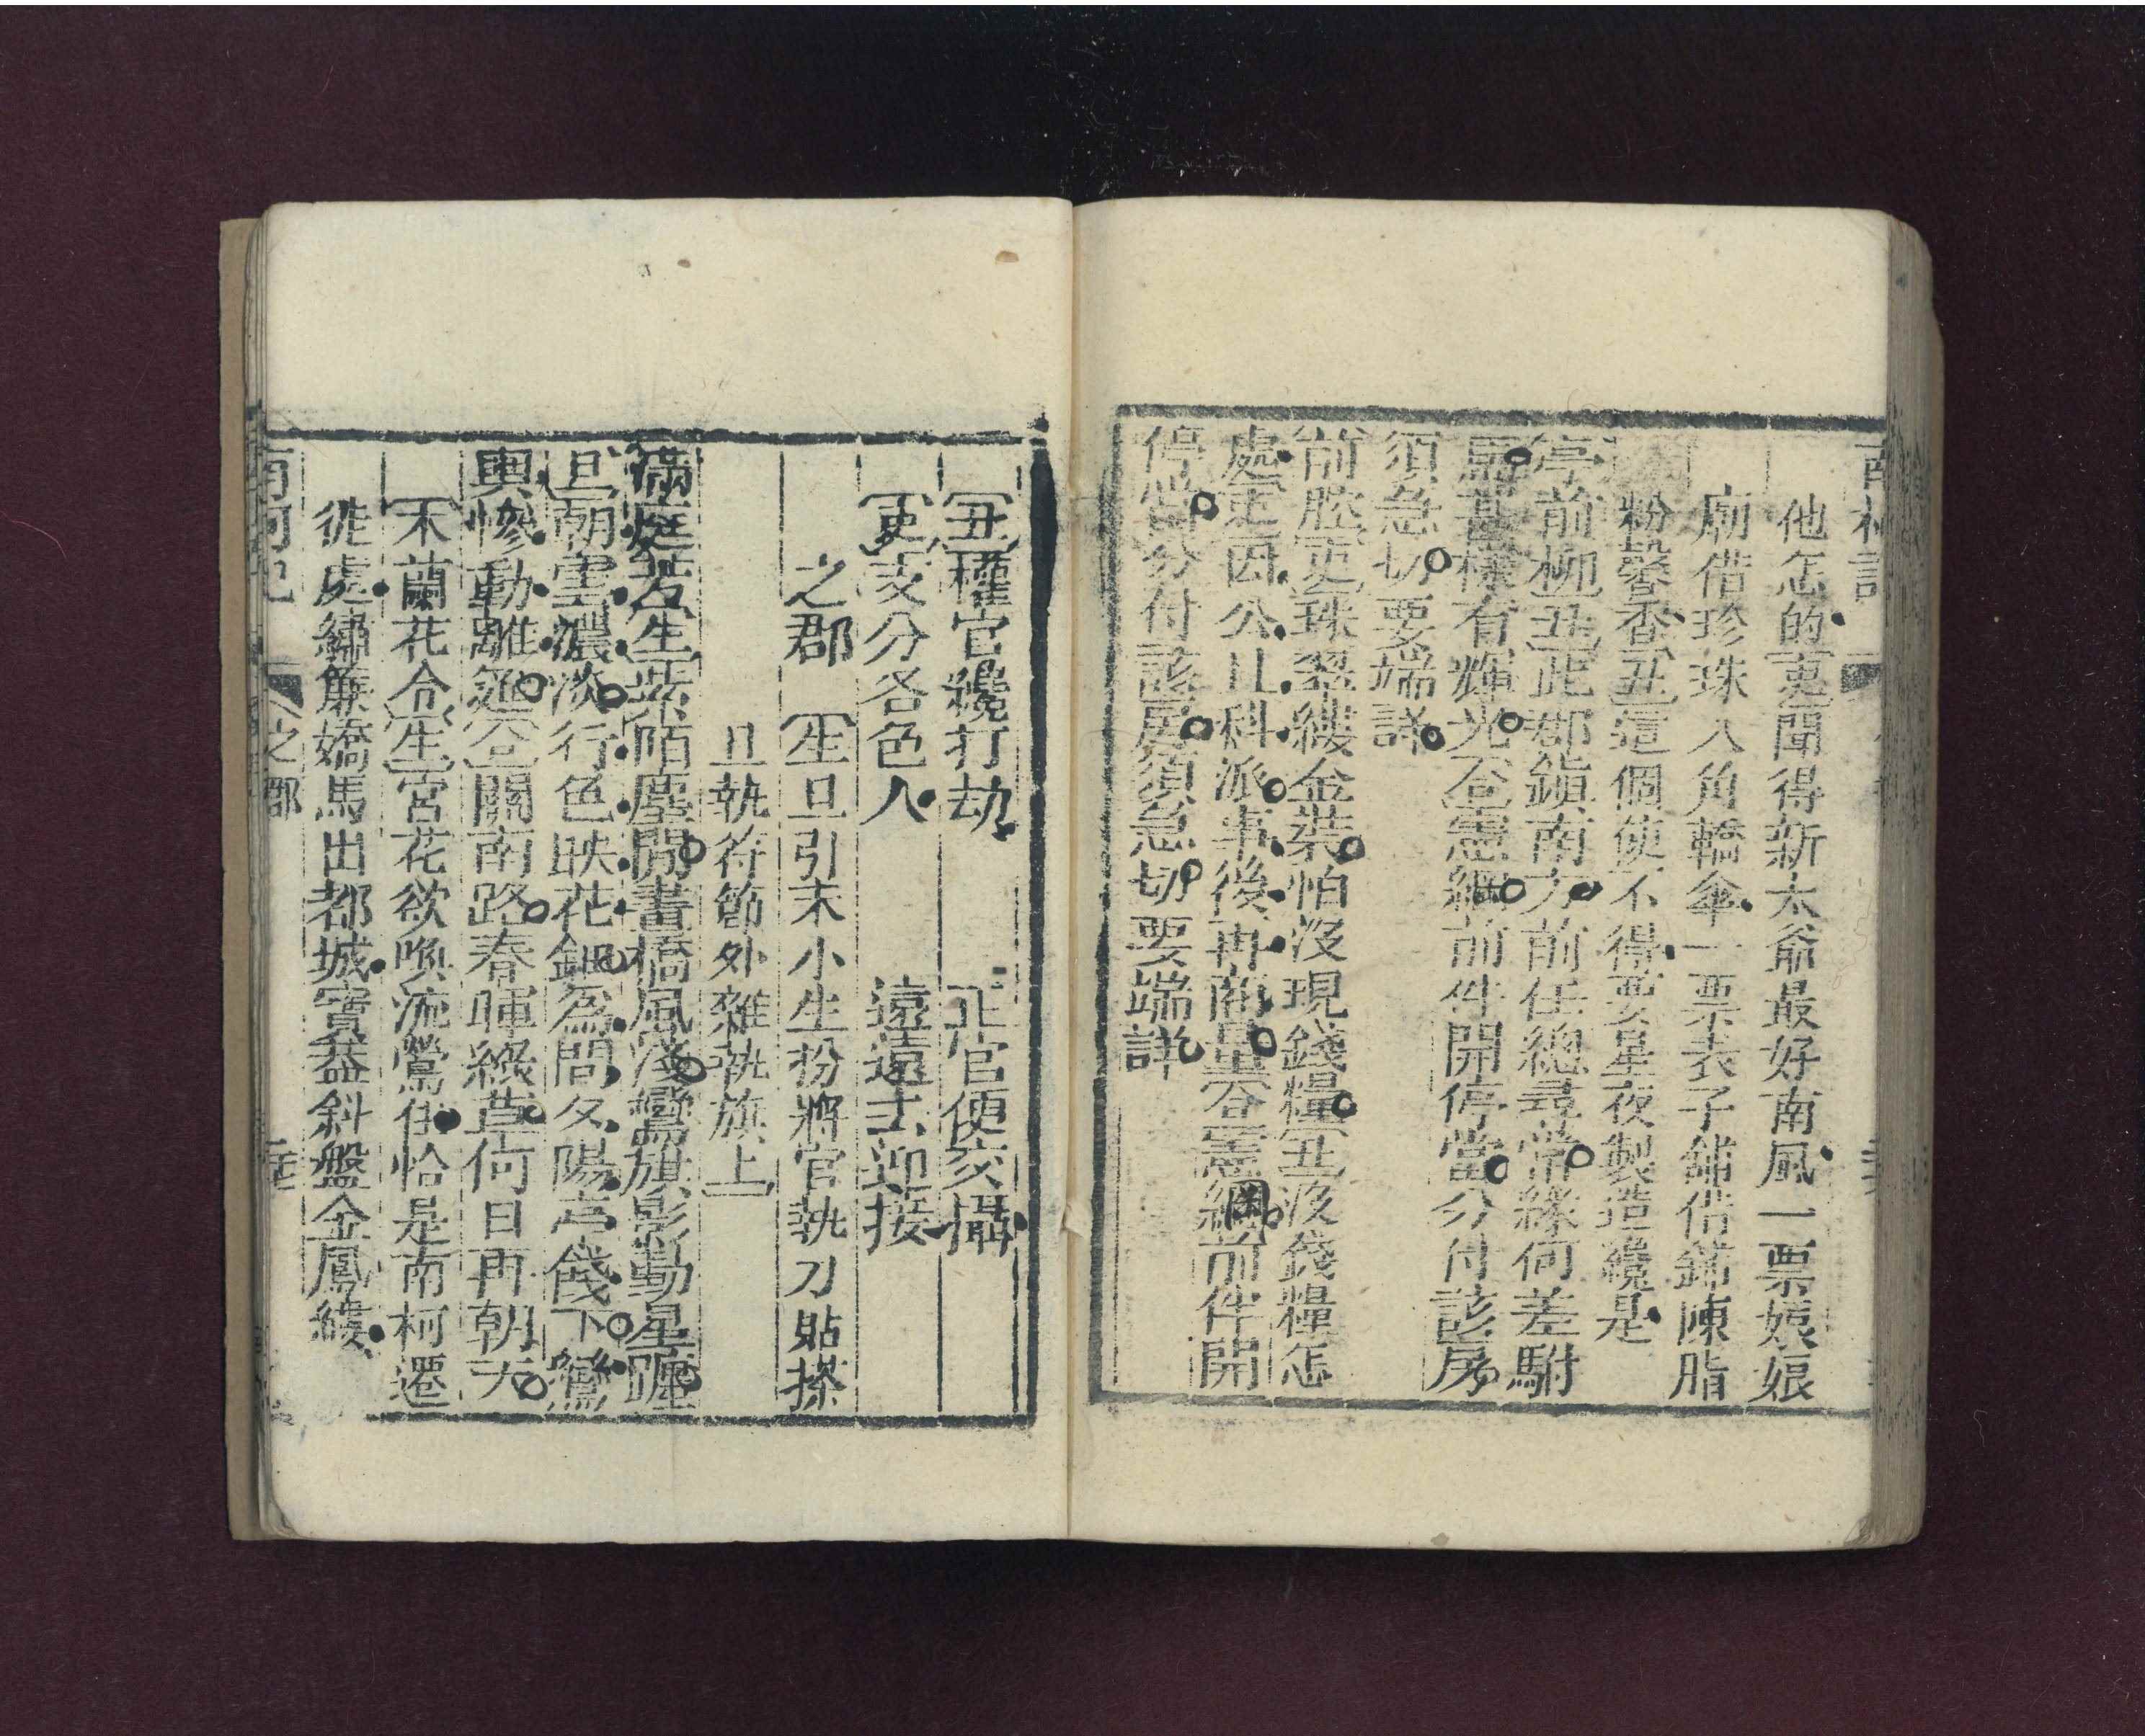 南柯記
他怎的吏聞得新太爺最好南風一票娘娘
廟借珍珠八角轎傘一票表子鋪借鋪陳脂
粉馨香丑這個使不得要星夜製造纔是
亭前柳丑此郡鎮南方前任總尋常緣何差駙
馬甚樣有輝光合憲綱前件開停當分付該房
須急切要端詳
前腔吏珠翠縷金裝怕沒現錢糧丑沒錢糧怎
處吏因公且科派事後再商量合憲綱前件開
停當分付該房須急切要端詳
丑權官纔打劫 正官便交攝
吏支分各色人 遠遠去迎接
之郡 生旦引末小生扮將官執刀貼搽
旦執符節外雜執旗上
滿庭芳生紫陌塵閒畫橋風淺鸞旗影動星躔
旦朝雲濃淡行色映花鈿為問夕陽亭餞下鸞
輿慘動離筵合關南路春暉綠草何日再朝天
木蘭花令生宮花欲喚流鶯住恰是南柯遷
徙處繡簾嬌馬出都城寶蓋斜盤金鳳縷
南柯記 之郡